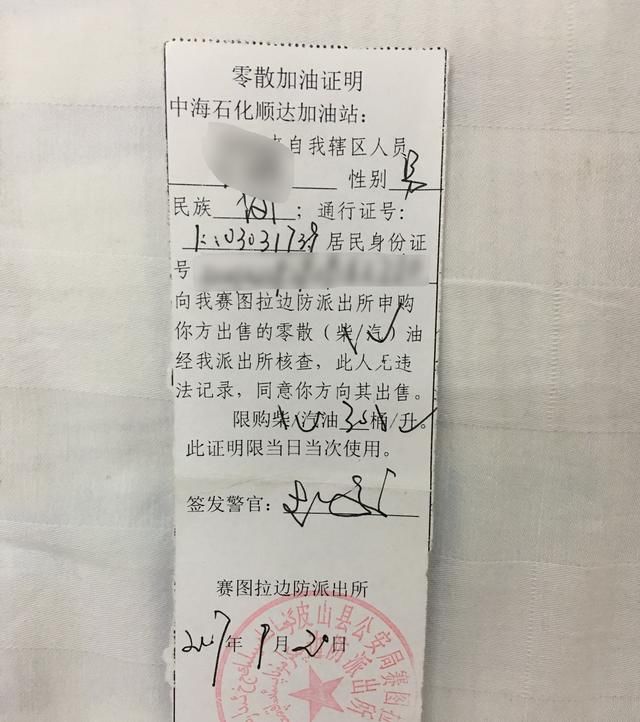 零散加油证明
中海石化顺达加油站：
来自我辖区人员
性别 男
民族 ；通行证号：
03031738 居民身份证
号
向我赛图拉边防派出所申购
你方出售的零散（柴/汽）油
经我派出所核查，此人无违
法记录，同意你方向其出售。
限购柴/汽油 30 桶/升。
此证明限当日当次使用。
签发警官：
赛图拉边防派出所
2017年9月20日
皮山县公安局赛图拉边防派出所